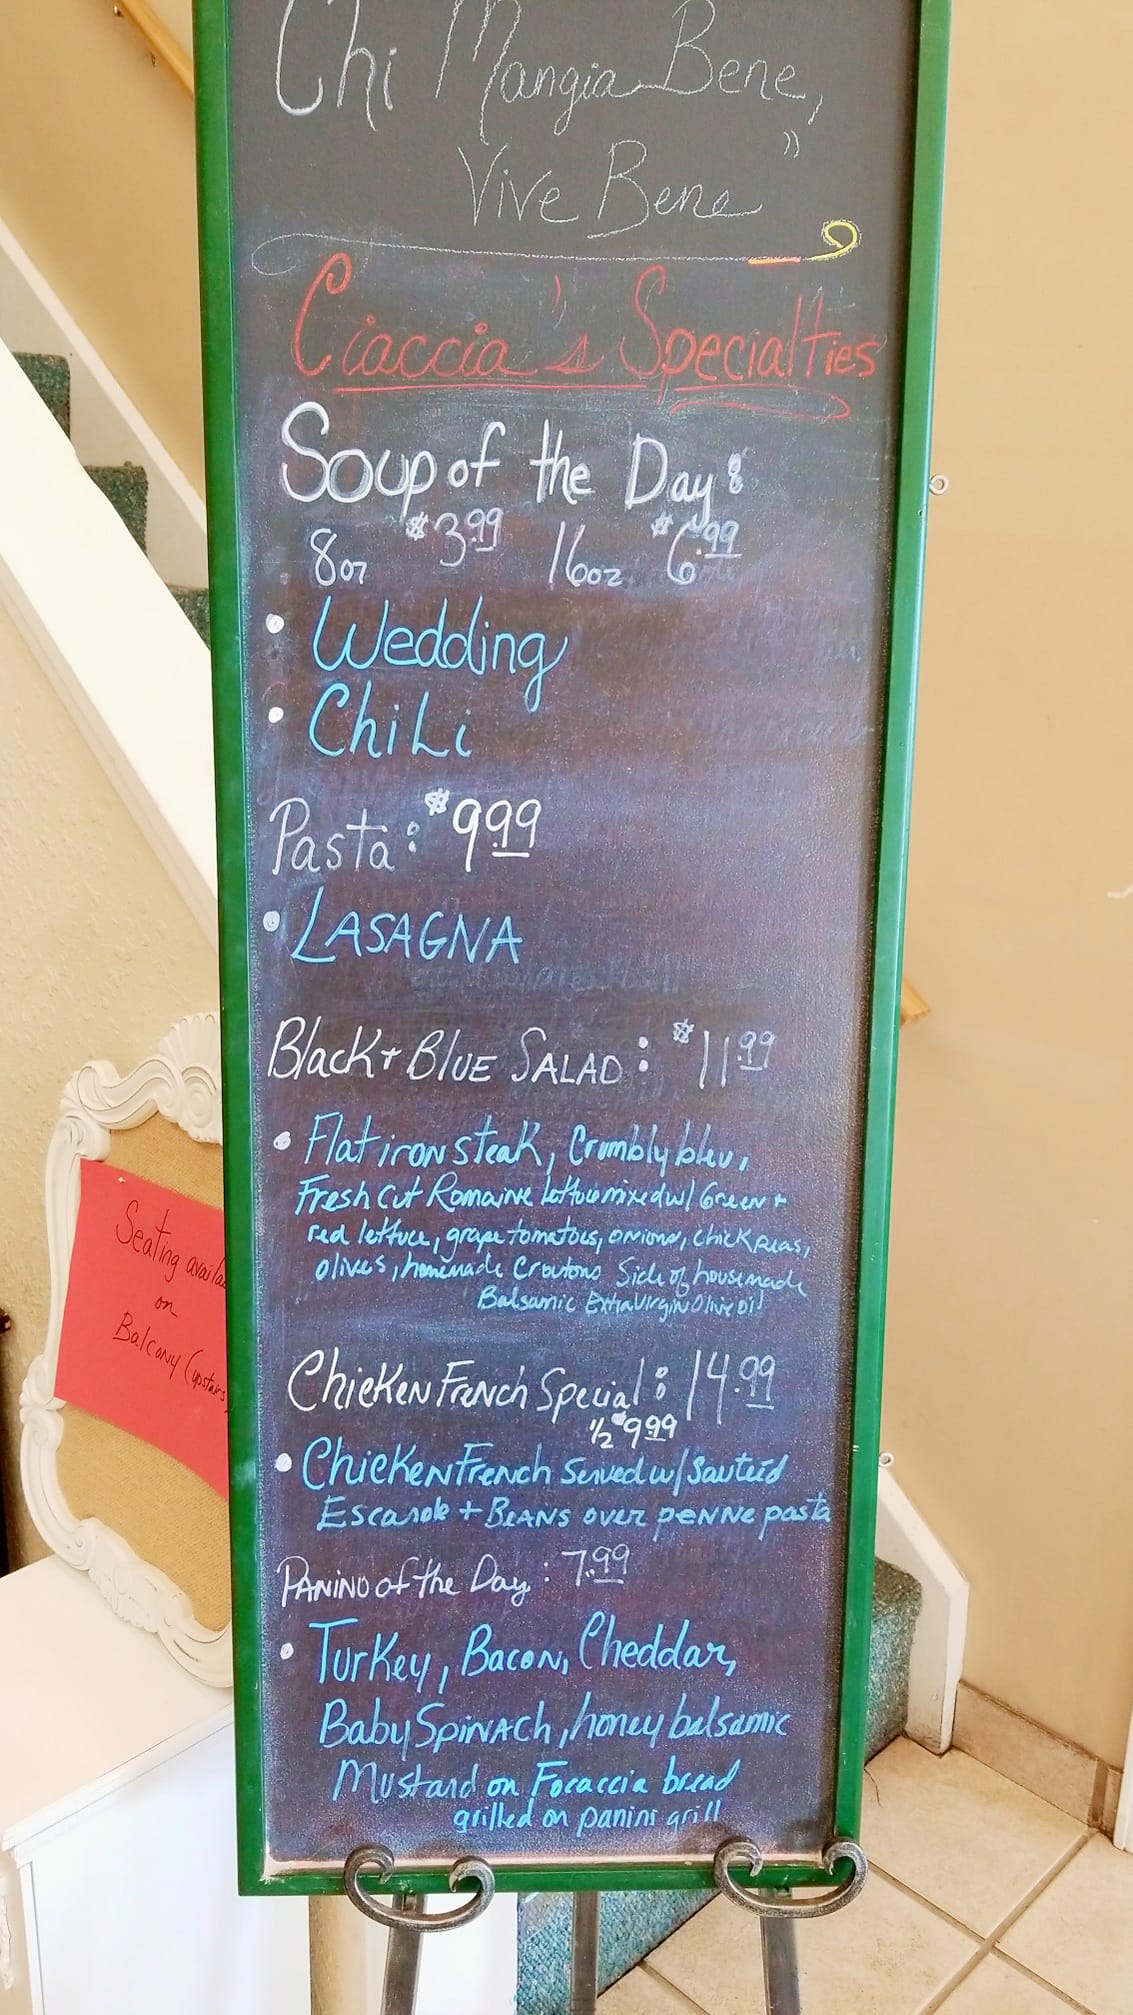 Chi Mangia Bene,
Vive Bene"
Ciaccia's Specialties
Soup of the Day:
8oz $3.99 16oz $6.99
• Wedding
• Chili
Pasta: $9.99
• LASAGNA
Black + BLUE SALAD: $11.99
• Flat iron steak, Crumbly bleu,
Fresh cut Romaine lettuce mixed w/ Green +
red lettuce, grape tomatoes, onions, chick peas,
olives, homemade Croutons Side of housemade
Balsamic Extra Virgin Olive oil
Chicken French Special: 14.99
1/2 $9.99
• Chicken French Served w/ Sauteéd
Escarole + Beans over penne pasta
PANINO of the Day: 7.99
• Turkey, Bacon, Cheddar,
Baby Spinach, honey balsamic
Mustard on Focaccia bread
grilled on panini grill
Seating availa
on
Balcony (upstairs